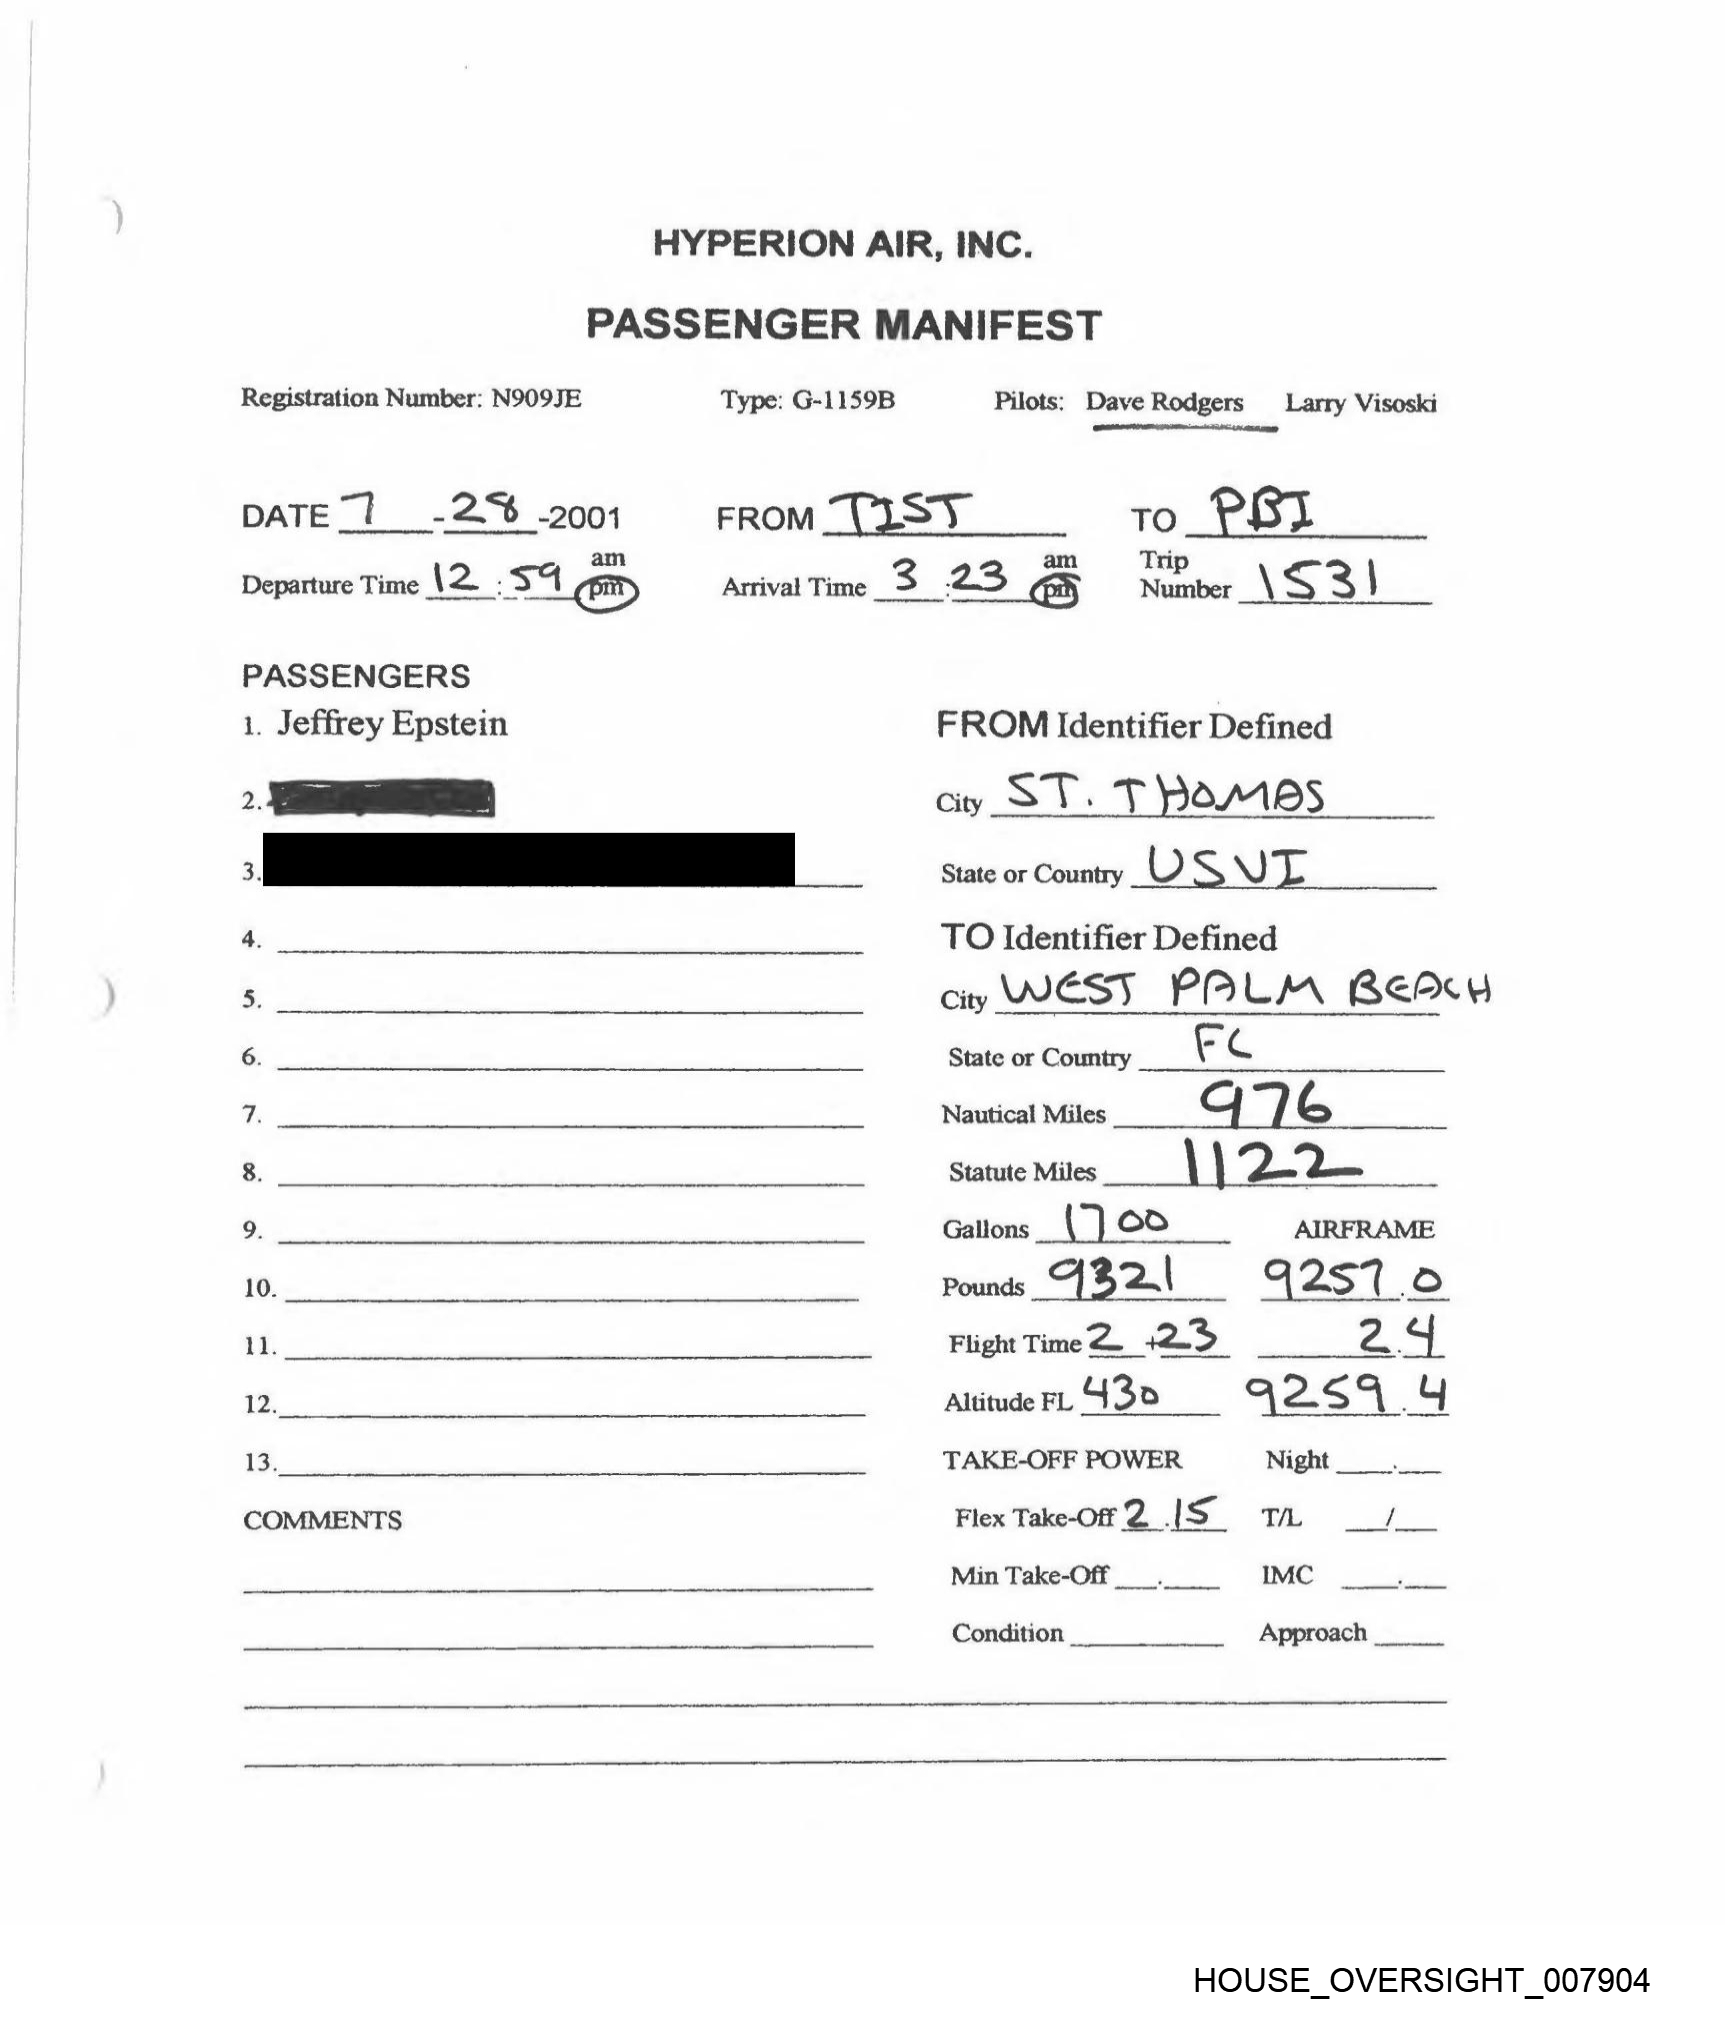 HYPERION AIR, INC.
PASSENGER MANIFEST
Registration Number: N909JE Type: G-1159B Pilots: Dave Rodgers Larry Visoski
DATE 7 - 28 -2001 FROM TIST TO PBI
Departure Time 12 : 59 am pm Arrival Time 3 : 23 am pm Trip Number 1531
PASSENGERS
1. Jeffrey Epstein
2.
3.
4.
5.
6.
7.
8.
9.
10.
11.
12.
13.
COMMENTS
FROM Identifier Defined
City ST. THOMAS
State or Country USVI
TO Identifier Defined
City WEST PALM BEACH
State or Country FL
Nautical Miles 976
Statute Miles 1122
Gallons 1700 AIRFRAME
Pounds 9321 9257.0
Flight Time 2 + 23 2.4
Altitude FL 430 9259.4
TAKE-OFF POWER Night .
Flex Take-Off 2.15 T/L /
Min Take-Off . IMC .
Condition Approach
HOUSE_OVERSIGHT_007904